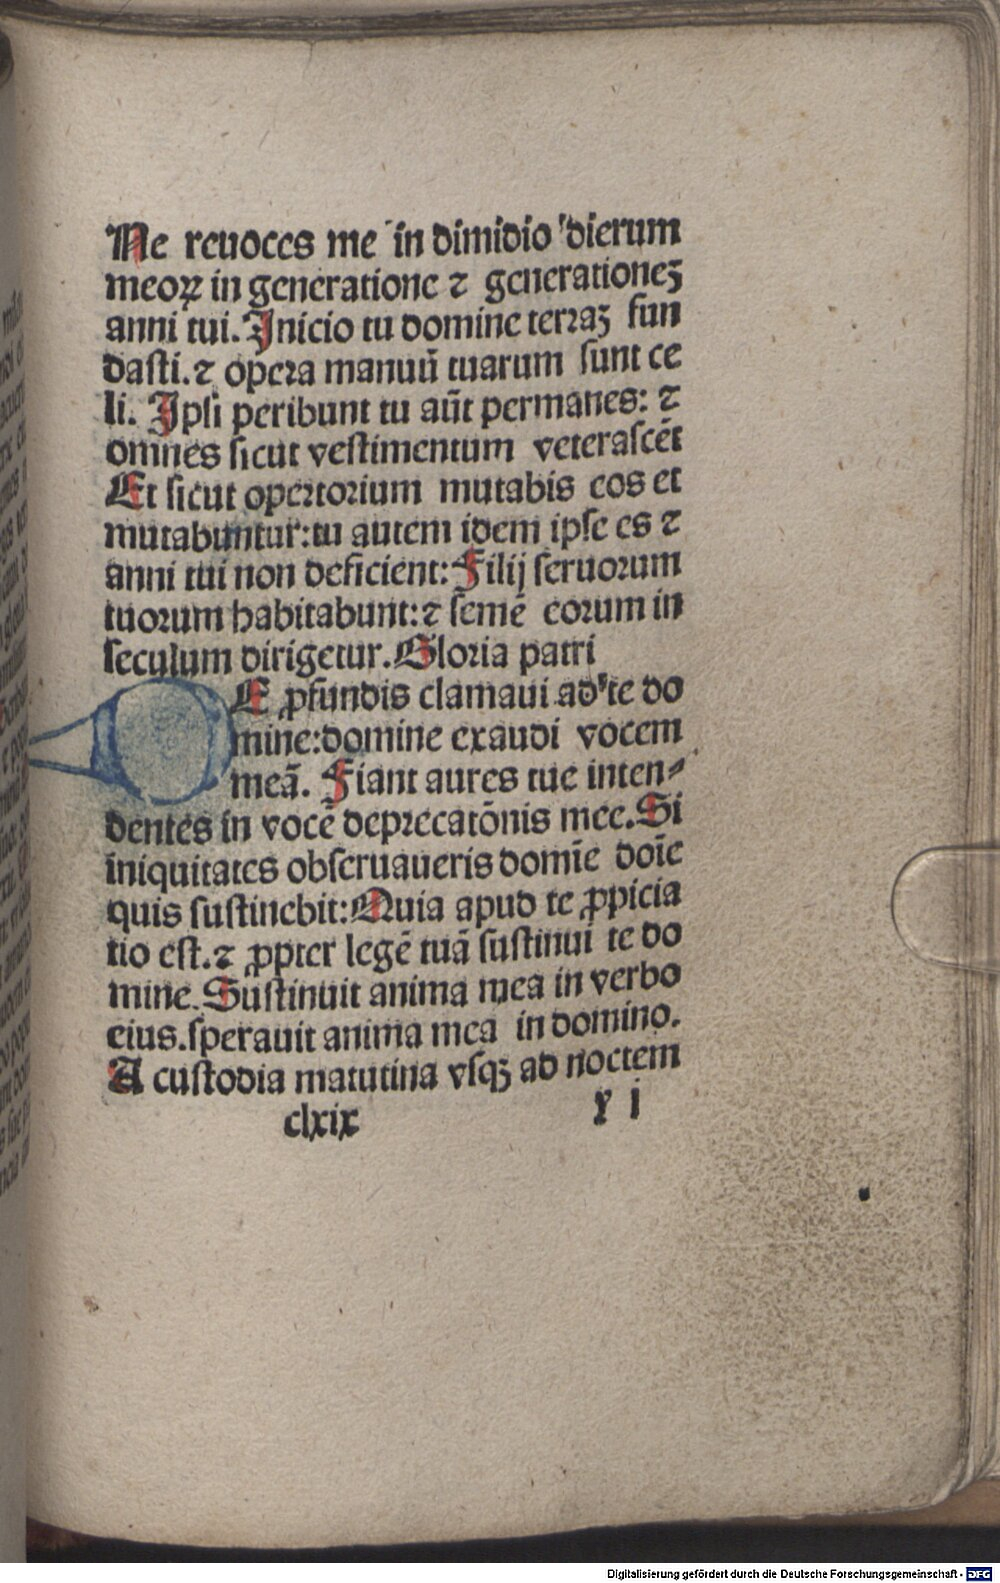 Ne reuoces me in dimidio dierum
meoꝝ in generatione ⁊ generationeꝫ
anni tui. Inicio tu domine terraꝫ fun
dasti. ⁊ opera manuū tuarum sunt ce
li. Ipsi peribunt tu aūt permanes: ⁊
omnes sicut vestimentum veterascēt
Et sicut opertorium mutabis eos et
mutabuntur: tu autem idem ipse es ⁊
anni tui non deficient: Filij seruorum
tuorum habitabunt: ⁊ semē eorum in
seculum dirigetur. Gloria patri
DE ꝓfundis clamaui ad te do
mine: domine exaudi vocem
meā. Fiant aures tue inten⸗
dentes in vocē deprecatōnis mee. Si
iniquitates obseruaueris domīe doīe
quis sustinebit: Quia apud te ꝓpicia
tio est. ⁊ ꝓpter legē tuā sustinui te do
mine. Sustinuit anima mea in verbo
eius. sperauit anima mea in domino.
A custodia matutina vsqꝫ ad noctem
clxix y i
Digitalisierung gefördert durch die Deutsche Forschungsgemeinschaft - DFG